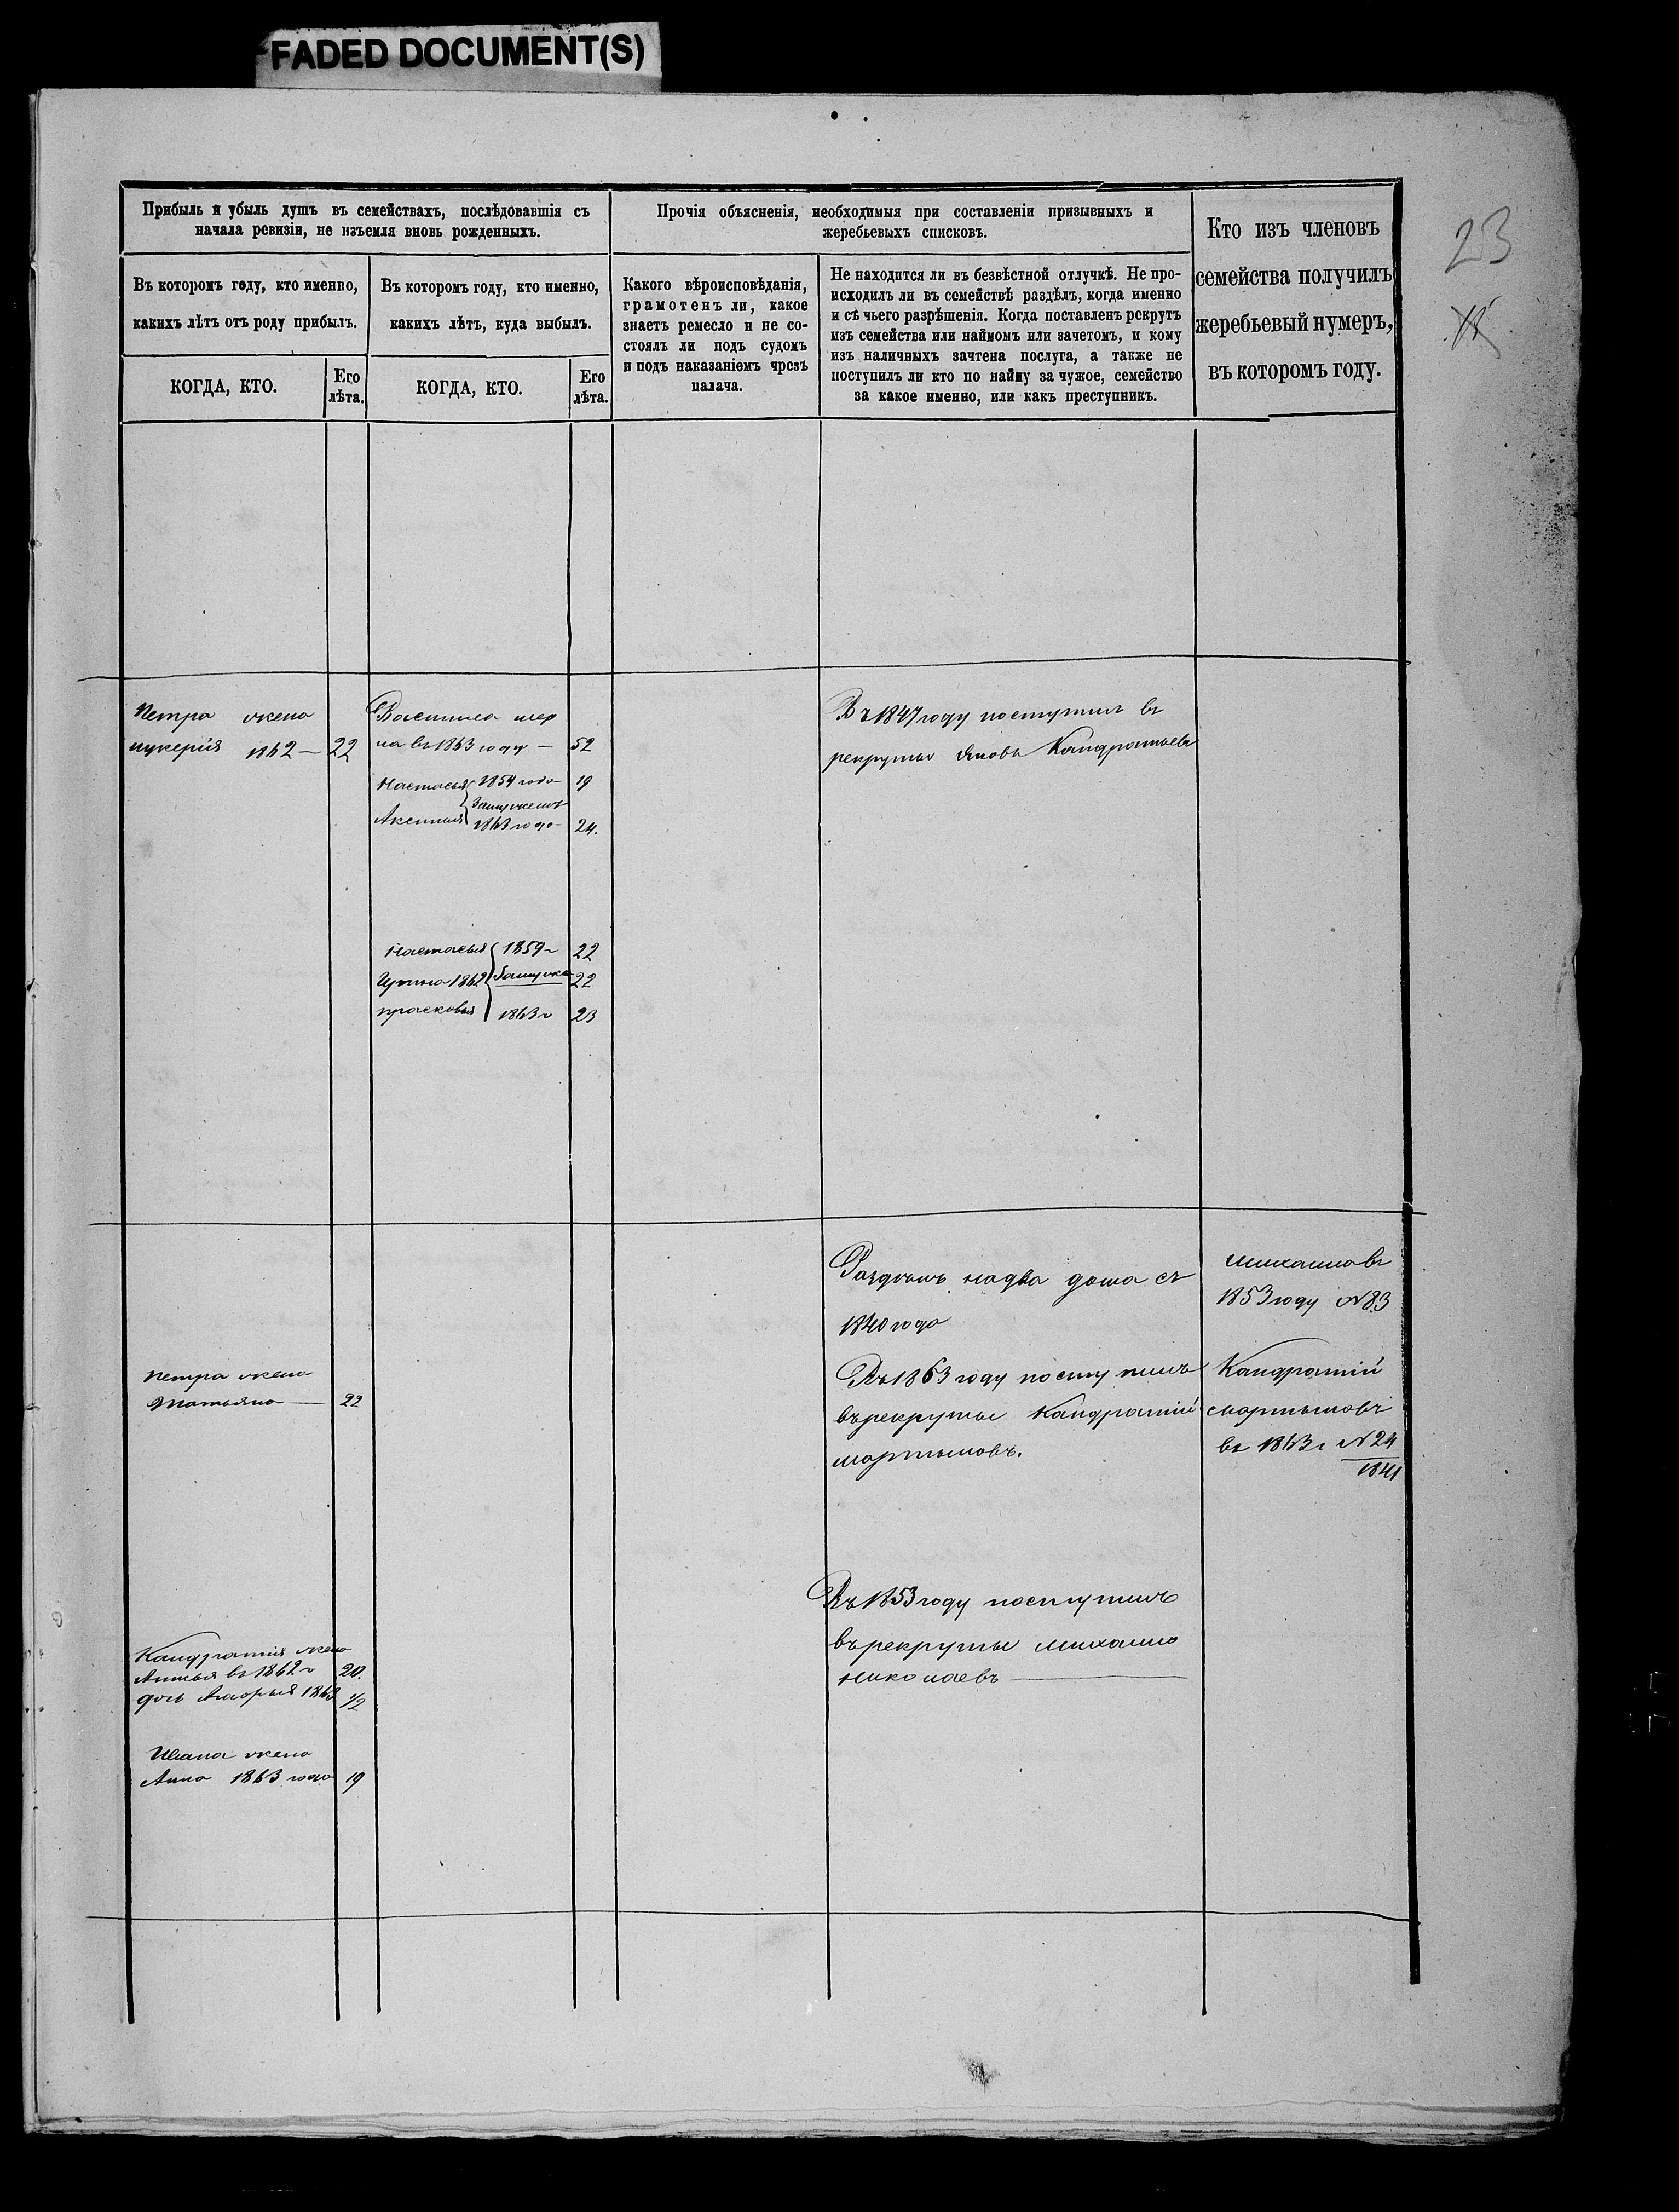 FADED DOCUMENT(S)
23
Прибыль и убыль душъ въ семействахъ, послѣдовавшія съ
начала ревизіи, не изъемля вновь рожденныхъ.
Въ которомъ году, кто именно,
какихъ лѣтъ отъ роду прибылъ.
КОГДА, КТО.
Его
лѣта.
Въ которомъ году, кто именно,
какихъ лѣтъ, куда выбылъ.
КОГДА, КТО.
Его
лѣта.
Прочія объясненія, необходимыя при составленіи призывныхъ и
жеребьевыхъ списковъ.
Какого вѣроисповѣданія,
грамотенъ ли, какое
знаетъ ремесло и не со-
стоялъ ли подъ судомъ
и подъ наказаніемъ чрезъ
палача.
Не находится ли въ безвѣстной отлучкѣ. Не про-
исходилъ ли въ семействѣ раздѣлъ, когда именно
и съ чьего разрѣшенія. Когда поставленъ рекрутъ
изъ семейства или наймомъ или зачетомъ, и кому
изъ наличныхъ зачтена послуга, а также не
поступилъ ли кто по найму за чужое, семейство
за какое именно, или какъ преступникъ.
Кто изъ членовъ
семейства получилъ
жеребьевый нумеръ,
въ которомъ году.
Петра жена
лукерія 1862 — 22
Василиса
на въ 1863 году — 52
Настасья 1854 года — 19
Замужемъ
Аксинья 1863 года — 24.
Въ 1847 году поступил въ
рекруты Яковъ Кандратьевъ
Настасья 1859 г 22
1862 22
прасковья 1863 г 23
Раздѣлъ на два дома съ
1840 года
михаила въ
1853 году №83
Петра жена
Татьяна — 22
Въ 1863 году поступилъ
въ рекруты Кандратій
мартыновъ.
Кандратій
мартыновъ
въ 1863 г №24
1841
Въ 1853 году поступилъ
въ рекруты михаило
николаевъ
Кандратія жена
въ 1862 г 20.
дочь 1863 1/2
Ивана жена
Анна 1863 года 19